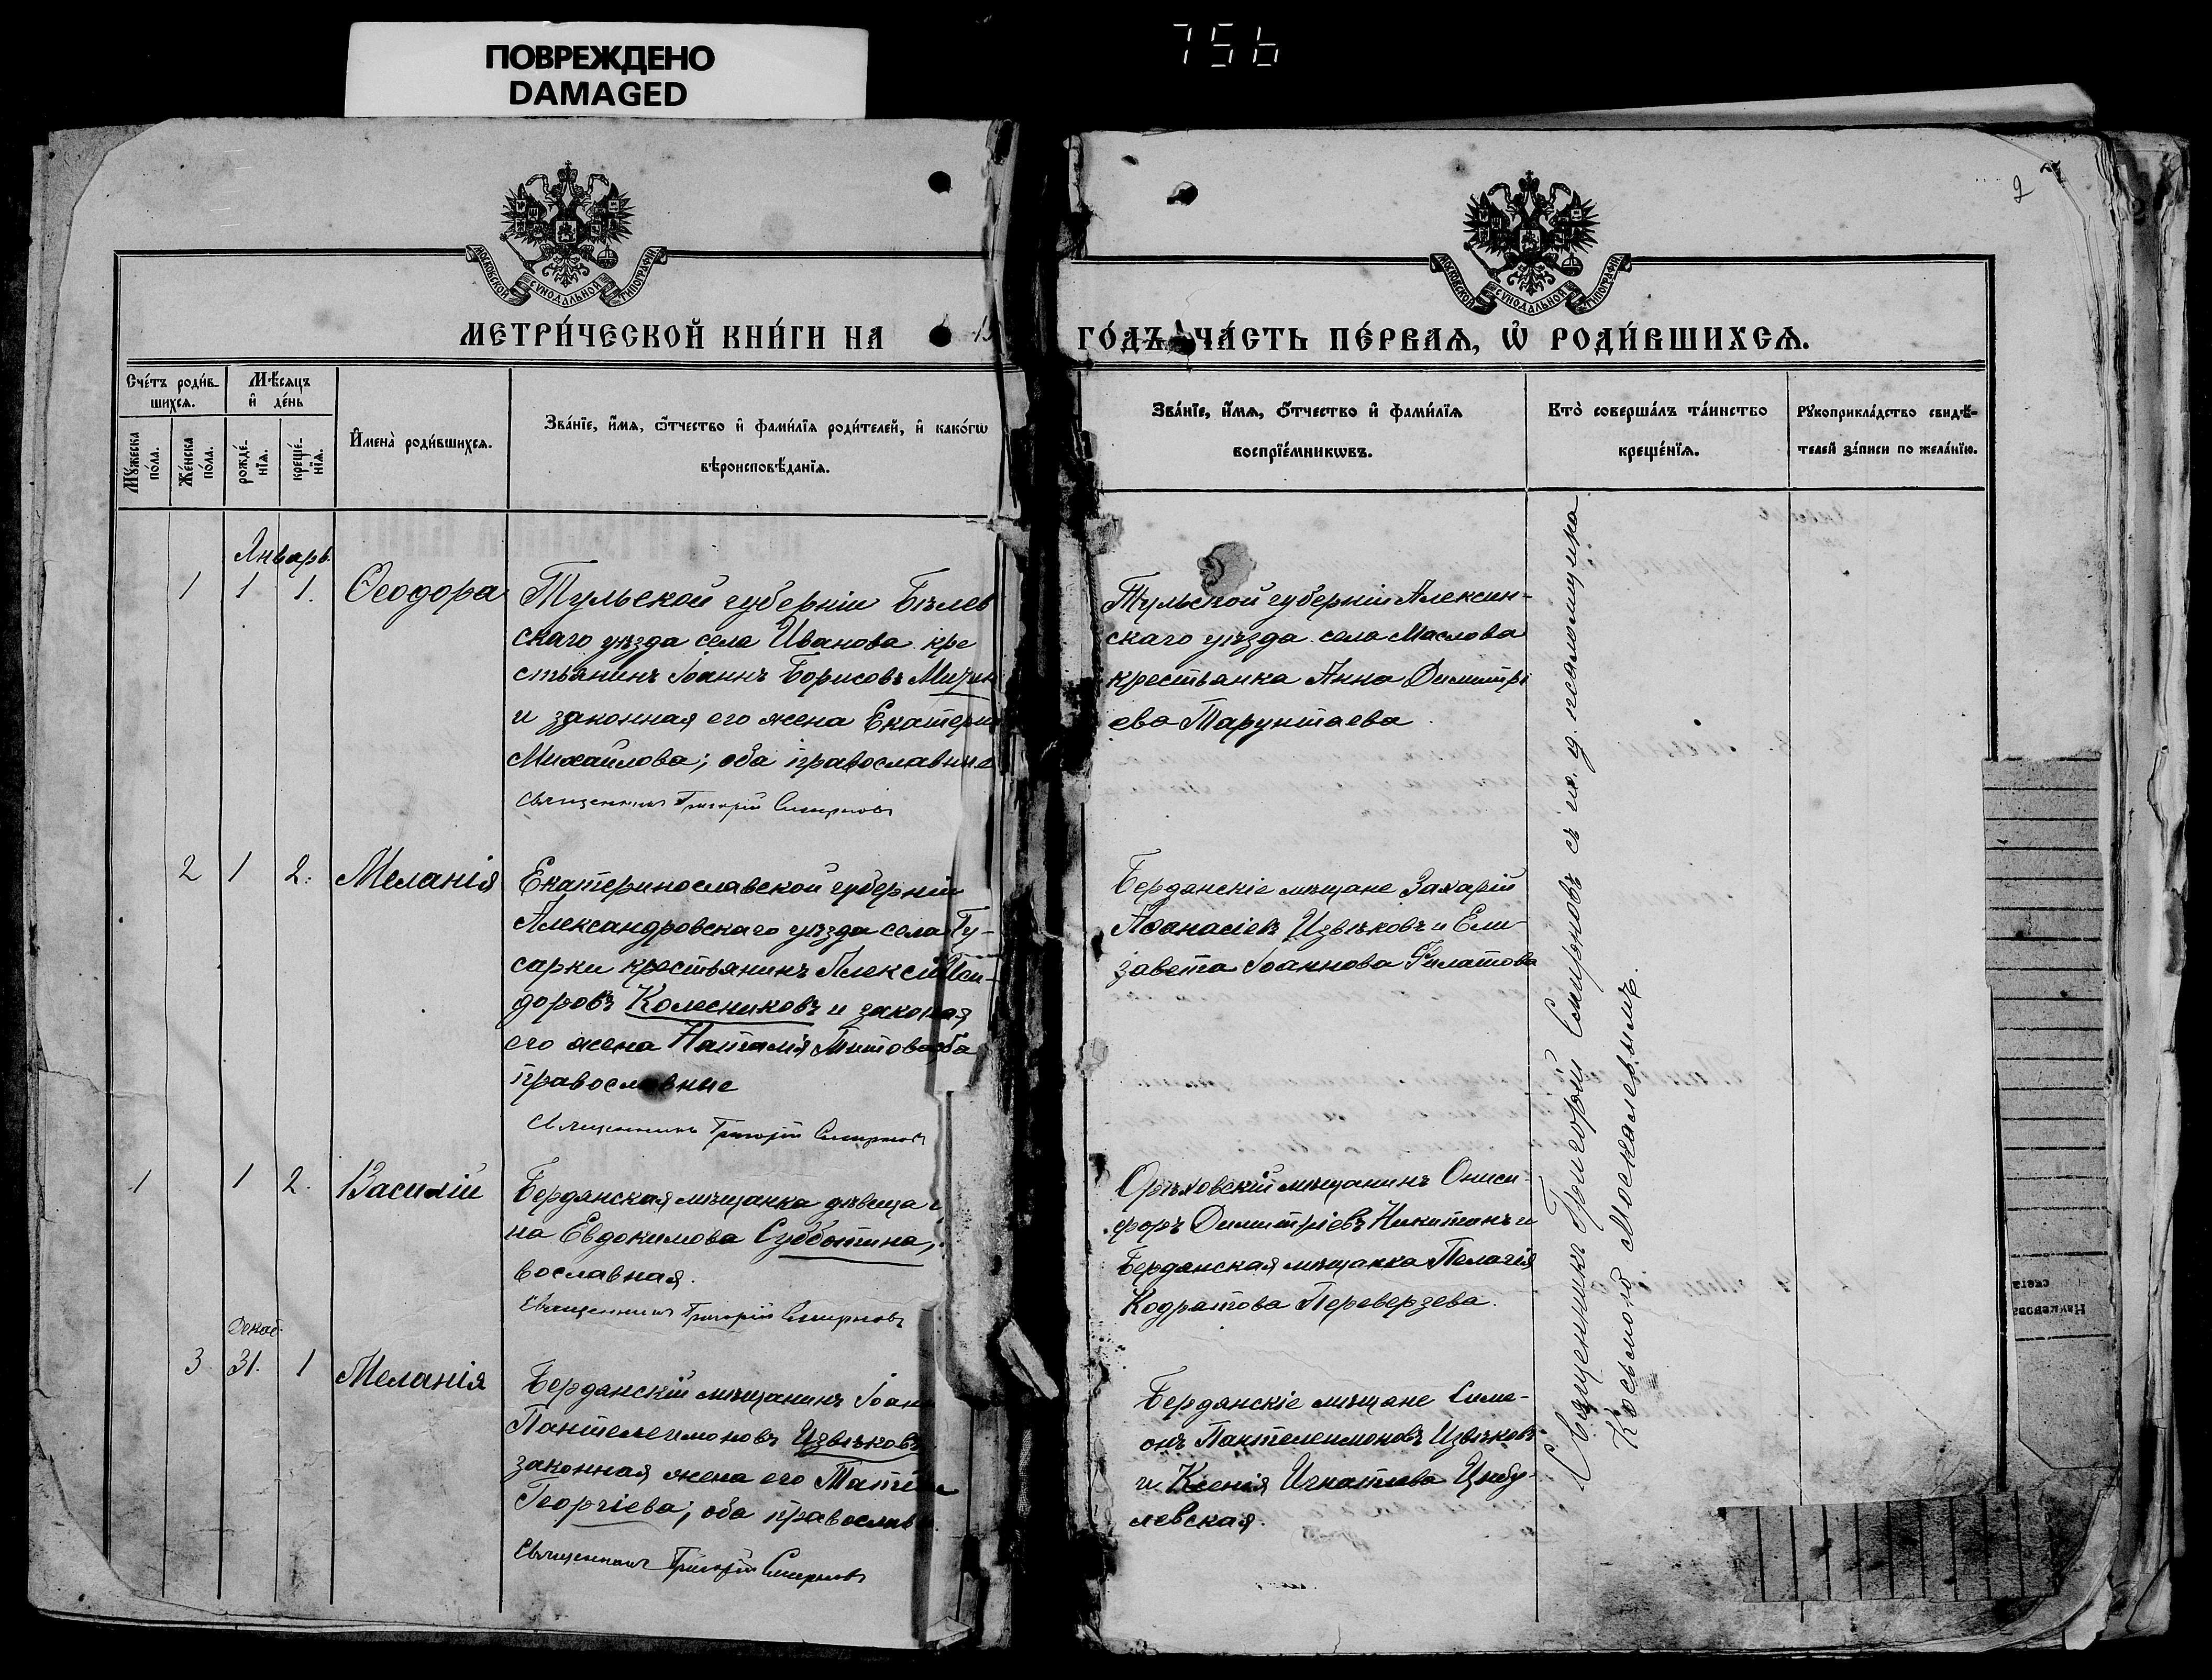 ПОВРЕЖДЕНО
DAMAGED
756
2
МОСКОВСКОЙ СѴНОДАЛЬНОЙ ТИПОГРАФІИ
МОСКОВСКОЙ СѴНОДАЛЬНОЙ ТИПОГРАФІИ
МЕТРИ́ЧЕСКОЙ КНИ́ГИ НА
ГО́ДЪ ЧА́СТЬ ПЕ́РВАѦ, Ѡ҆ РОДИ́ВШИХСѦ.
Сче́тъ роди́в-
шихсѧ.
Мѣ́сѧцъ
и҆ де́нь
Мꙋ́жеска
по́ла.
Же́нска
по́ла.
рожде́-
нїѧ.
креще́-
нїѧ.
И҆мена̀ роди́вшихсѧ.
Зва́нїе, и҆́мѧ, ѻ҆́тчество и҆ фами́лїѧ роди́телей, и҆ како́гѡ
вѣроисповѣ́данїѧ.
Зва́нїе, и҆́мѧ, ѻ҆́тчество и҆ фами́лїѧ
воспрїе́мникѡвъ.
Кто̀ соверша́лъ та́инство
креще́нїѧ.
Рꙋкоприкла́дство свидѣ́-
телей за́писи по жела́нїю.
Январь.
1 1 1. Ѳеодора
Тульской губерніи Бѣлев
скаго уѣзда села Иванова кре
стьянинъ Іоаннъ Борисовъ
и законная его жена Екатерин
Михаилова; оба православные
Священникъ Григорій Смирновъ
Тульской губерніи Алексин-
скаго уѣзда села Маслова
крестьянка Анна Димитрі
ева Тарунтаева.
2 1 2. Меланія
Екатеринославской губерніи
Александровскаго уѣзда села Гу-
сарки крестьянинъ Алексій Иси-
доровъ Колесниковъ и законая
его жена Наталія Титова оба
православные
Священникъ Григорій Смирновъ
Бердянскіе мѣщане Захарій
Аѳанасіевъ Извѣковъ и Ели-
завета Іоаннова Филатова
1 1 2. Василій
Бердянская мѣщанка дѣвица
на Евдокимова Субботина,
вославная.
Священникъ Григорій Смирновъ
Орѣховскій мѣщанинъ Ониси-
форъ Димитріевъ Никитинъ и
Бердянская мѣщанка Пелагія
Кодратова Переверзева.
Декаб.
3 31. 1 Меланія
Бердянскій мѣщанинъ Іоанн
Пантелеимоновъ Извѣковъ
законная жена его Татіана
Георгіева; оба православн
Священникъ Григорій Смирновъ
Бердянскіе мѣщане Симе-
онъ Пантелеимоновъ Извѣковъ
и Ксенія Игнатіева Цыбу-
левская.
Священникъ Григорій Смирновъ съ и. д. псаломщика
Косьмою Москалевымъ.